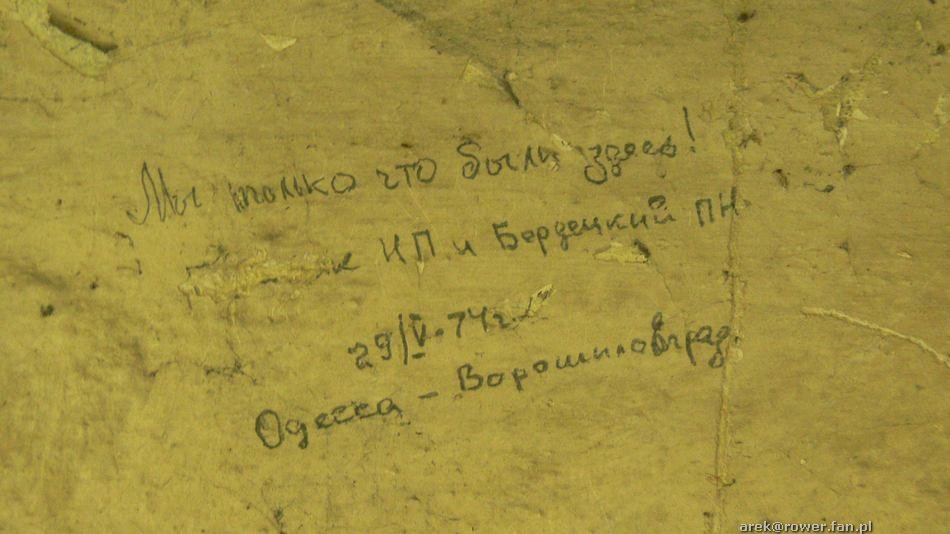 Мы только что были здесь!
НП и Бердецкий ПН
29/IV-74г.
Одесса - Ворошиловград
arek@rower.fan.pl